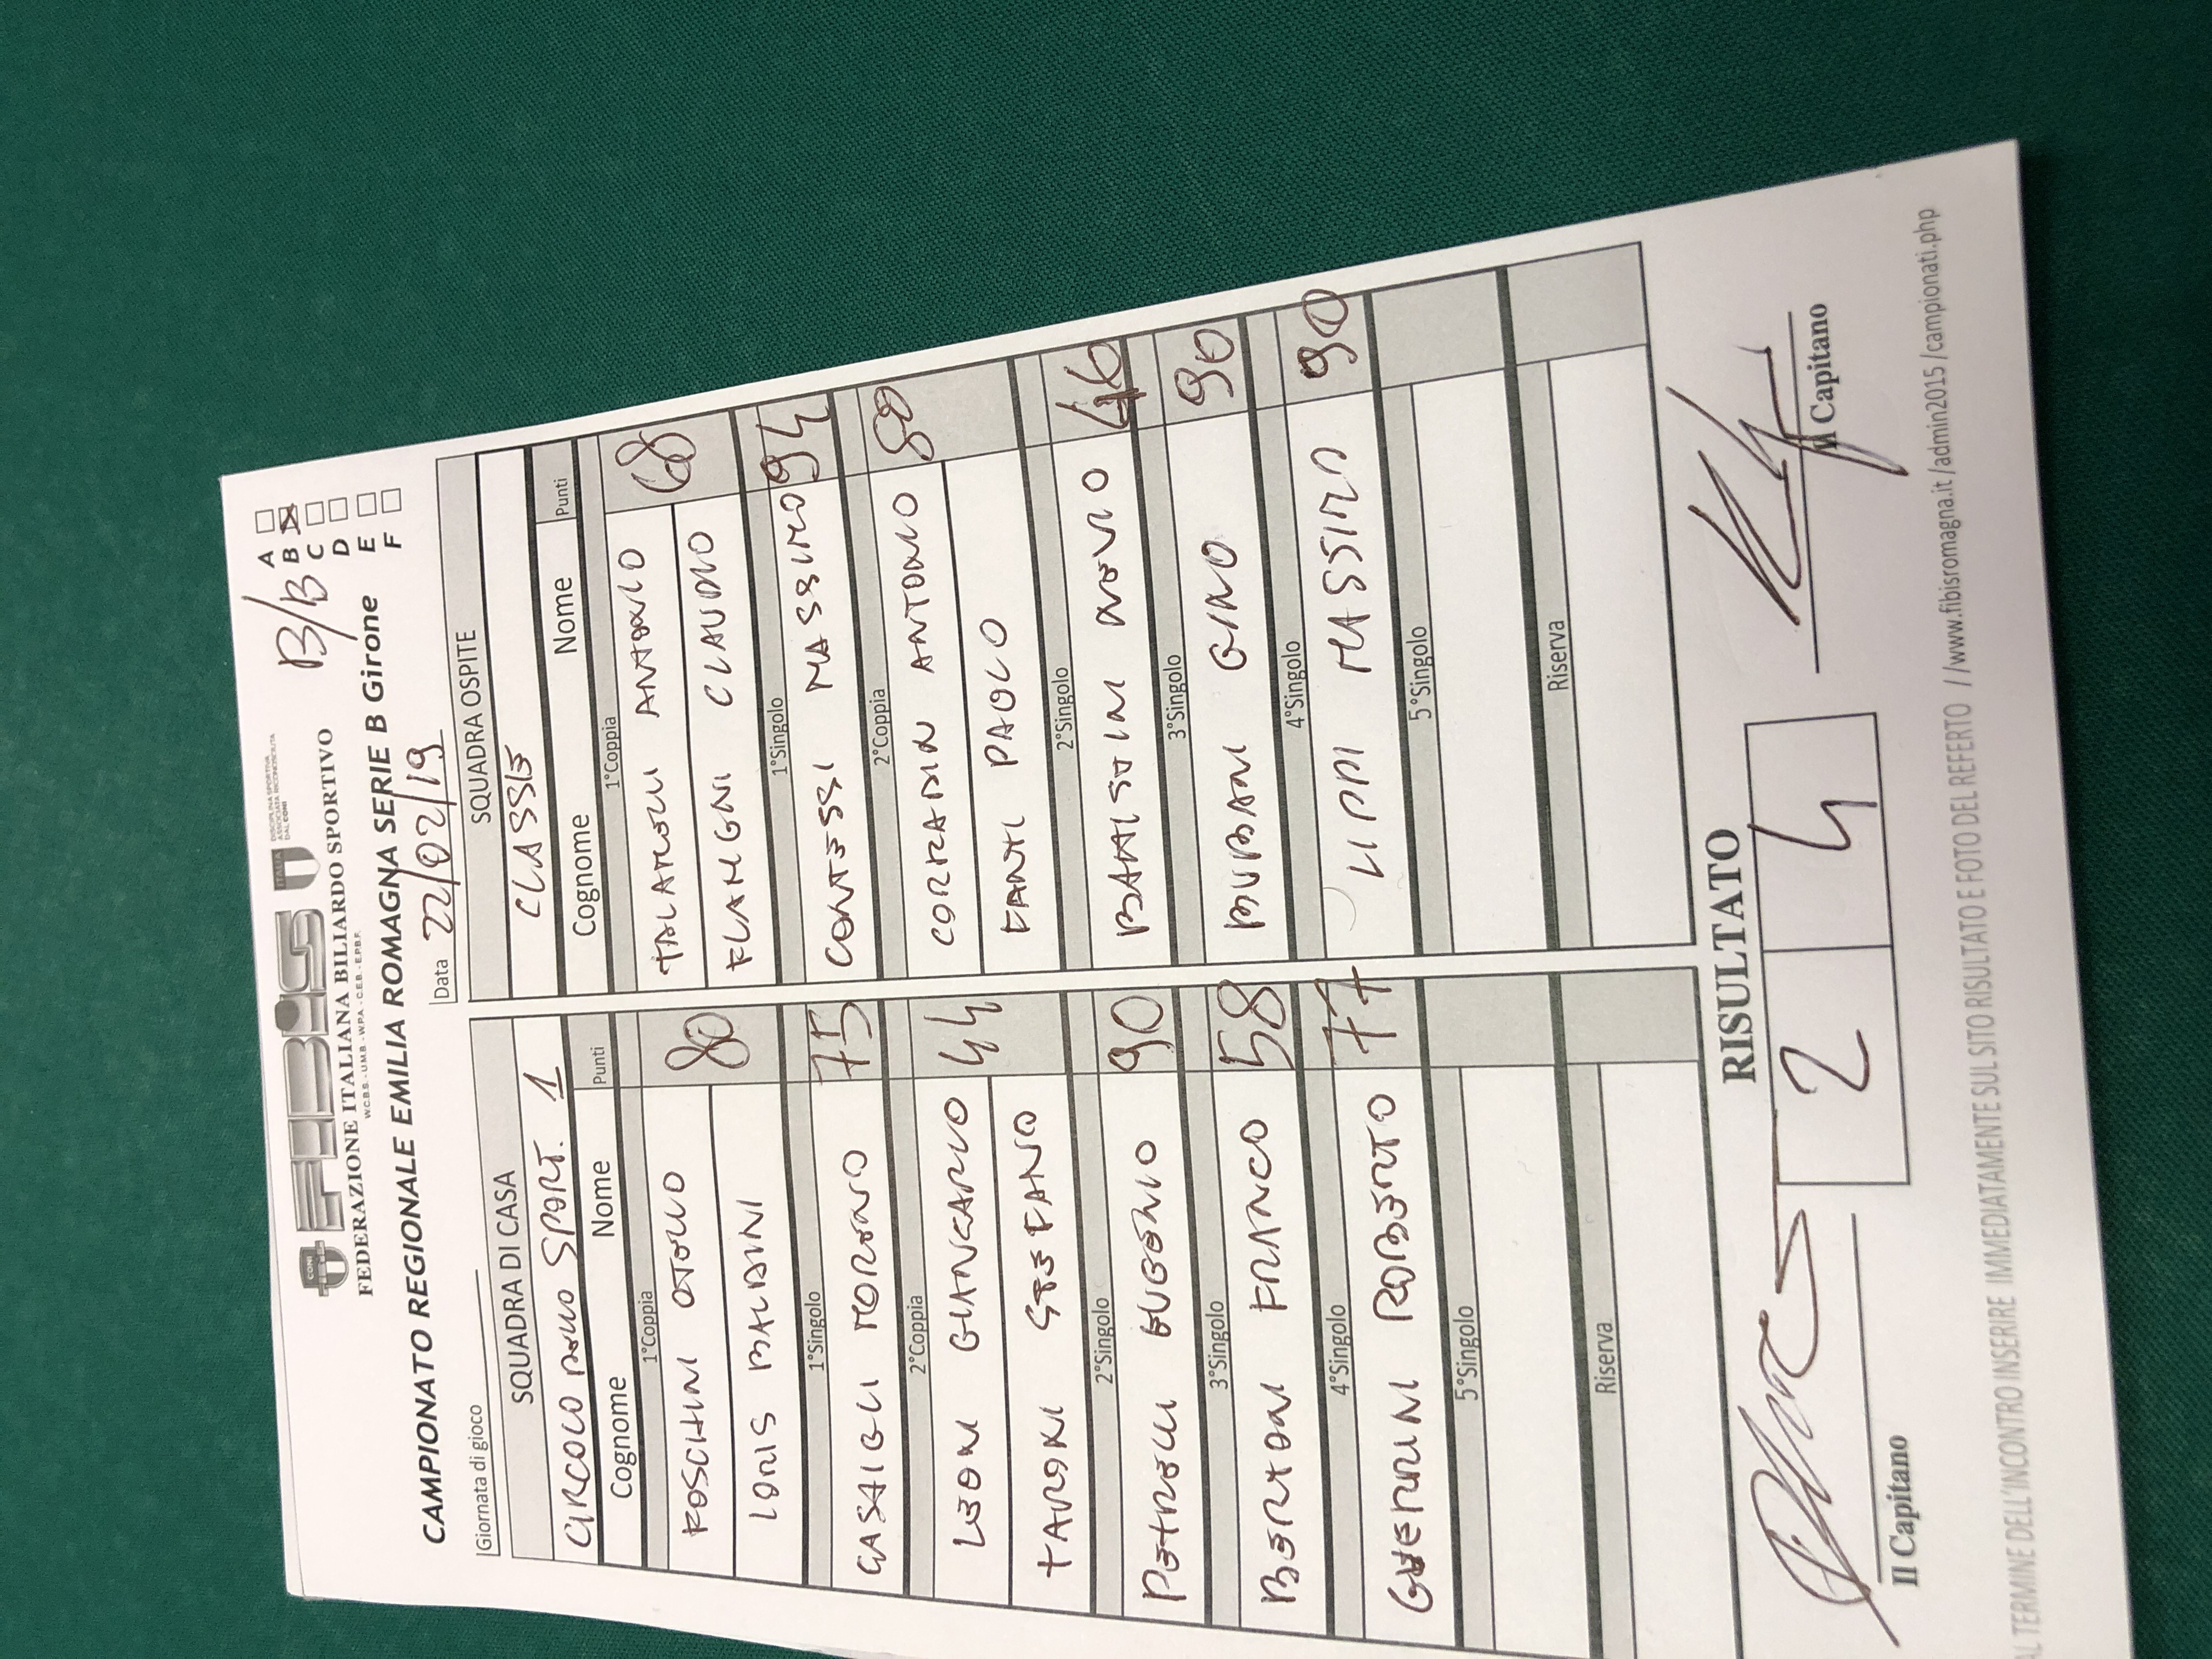 FEBIS
CONI
ITALIA
DISCIPLINA SPORTIVA
ASSOCIATA RICONOSCIUTA
DAL CONI
FEDERAZIONE ITALIANA BILIARDO SPORTIVO
W.C.B.S. - U.M.B. - W.P.A. - C.E.B. - E.P.B.F.
B/B
CAMPIONATO REGIONALE EMILIA ROMAGNA SERIE B Girone
A
B
C
D
E
F
Giornata di gioco
Data 22/02/19
SQUADRA DI CASA
CIRCOLO SPORT. 1
Cognome Nome Punti
1°Coppia
FOSCHINI OTELLO 80
LORIS BALDINI
1°Singolo
CASADIGLI MORENO 75
2°Coppia
LEONI GIANCARLO 44
TARONI STEFANO
2°Singolo
PETRELLI EUGENIO 90
3°Singolo
BERTONI FRANCO 58
4°Singolo
GUERRINI ROBERTO 77
5°Singolo
Riserva
SQUADRA OSPITE
CLASSIS
Cognome Nome Punti
1°Coppia
TALAMELLI ANTONIO 68
FLAMIGNI CLAUDIO
1°Singolo
CONTESSI MASSIMO 94
2°Coppia
CORRADIN ANTONIO 80
FANTI PAOLO
2°Singolo
BATTISTINI NOVIO 46
3°Singolo
BUBANI GINO 90
4°Singolo
LIPPI MASSIMO 90
5°Singolo
Riserva
RISULTATO
2 4
Il Capitano
Il Capitano
AL TERMINE DELL'INCONTRO INSERIRE IMMEDIATAMENTE SUL SITO RISULTATO E FOTO DEL REFERTO //www.fibisromagna.it/admin2015/campionati.php